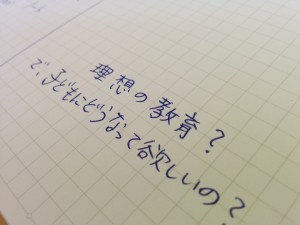 理想の教育？
で、子どもにどうなって欲しいの？